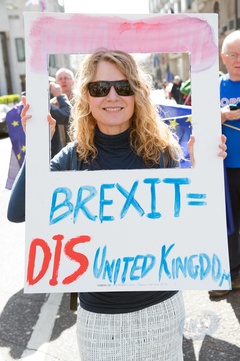 BREXIT=
DISUNITED KINGDOM